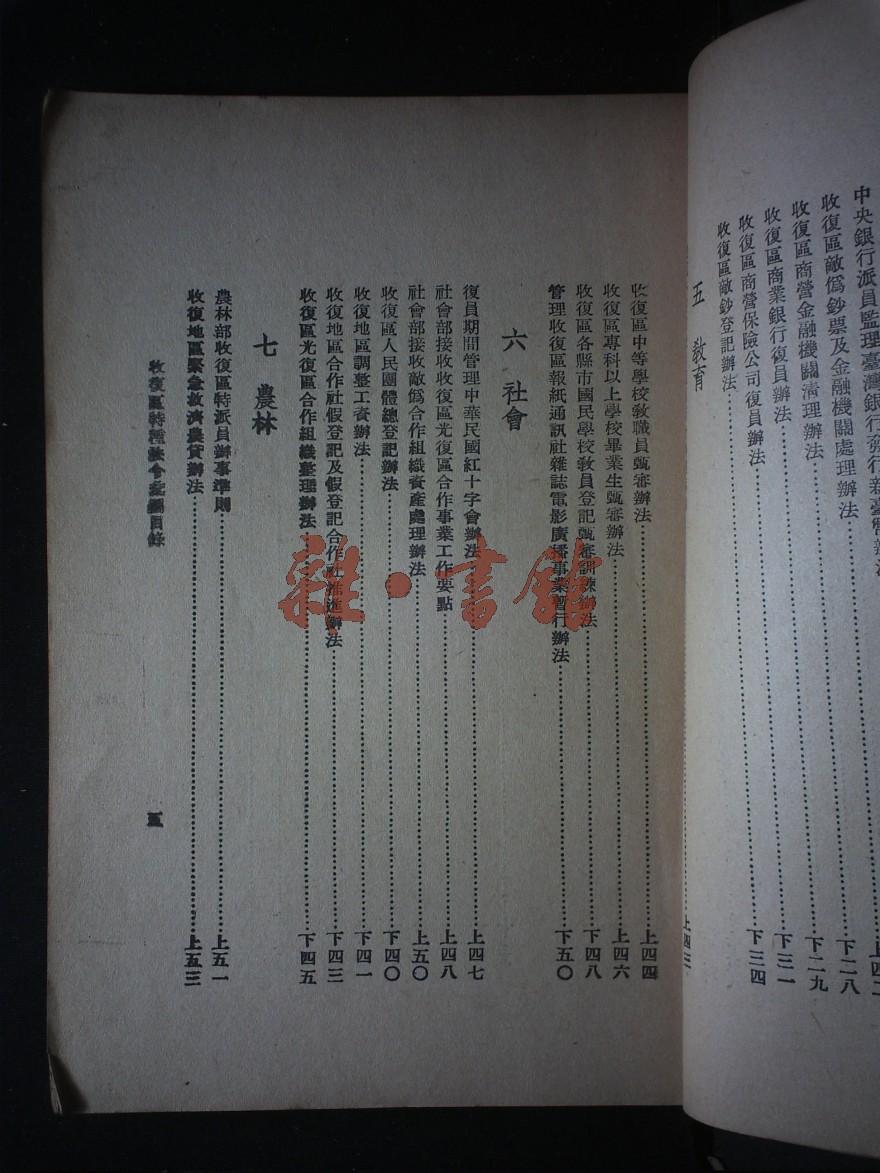 中央銀行派員監理臺灣銀行發行新臺幣辦法……上四二
收復區敵僞鈔票及金融機關處理辦法……下二八
收復區商營金融機關清理辦法……下二九
收復區商業銀行復員辦法……下三一
收復區商營保險公司復員辦法……下三四
收復區敵鈔登記辦法……上四三
五 教育
收復區中等學校教職員甄審辦法……上四四
收復區專科以上學校畢業生甄審辦法……上四六
收復區各縣市國民學校教員登記甄審訓練辦法……下四八
管理收復區報紙通訊社雜誌電影廣播事業暫行辦法……下五〇
六 社會
復員期間管理中華民國紅十字會辦法……上四七
社會部接收收復區光復區合作事業工作要點……上四八
社會部接收敵僞合作組織資產處理辦法……上五〇
收復區人民團體總登記辦法……下四〇
收復地區調整工資辦法……下四一
收復地區合作社假登記及假登記合作社推進辦法……下四三
收復區光復區合作組織整理辦法……下四五
七 農林
農林部收復區特派員辦事準則……上五一
收復地區緊急救濟農貸辦法……上五三
收復區特種法令彙編目錄
五
雜·書館